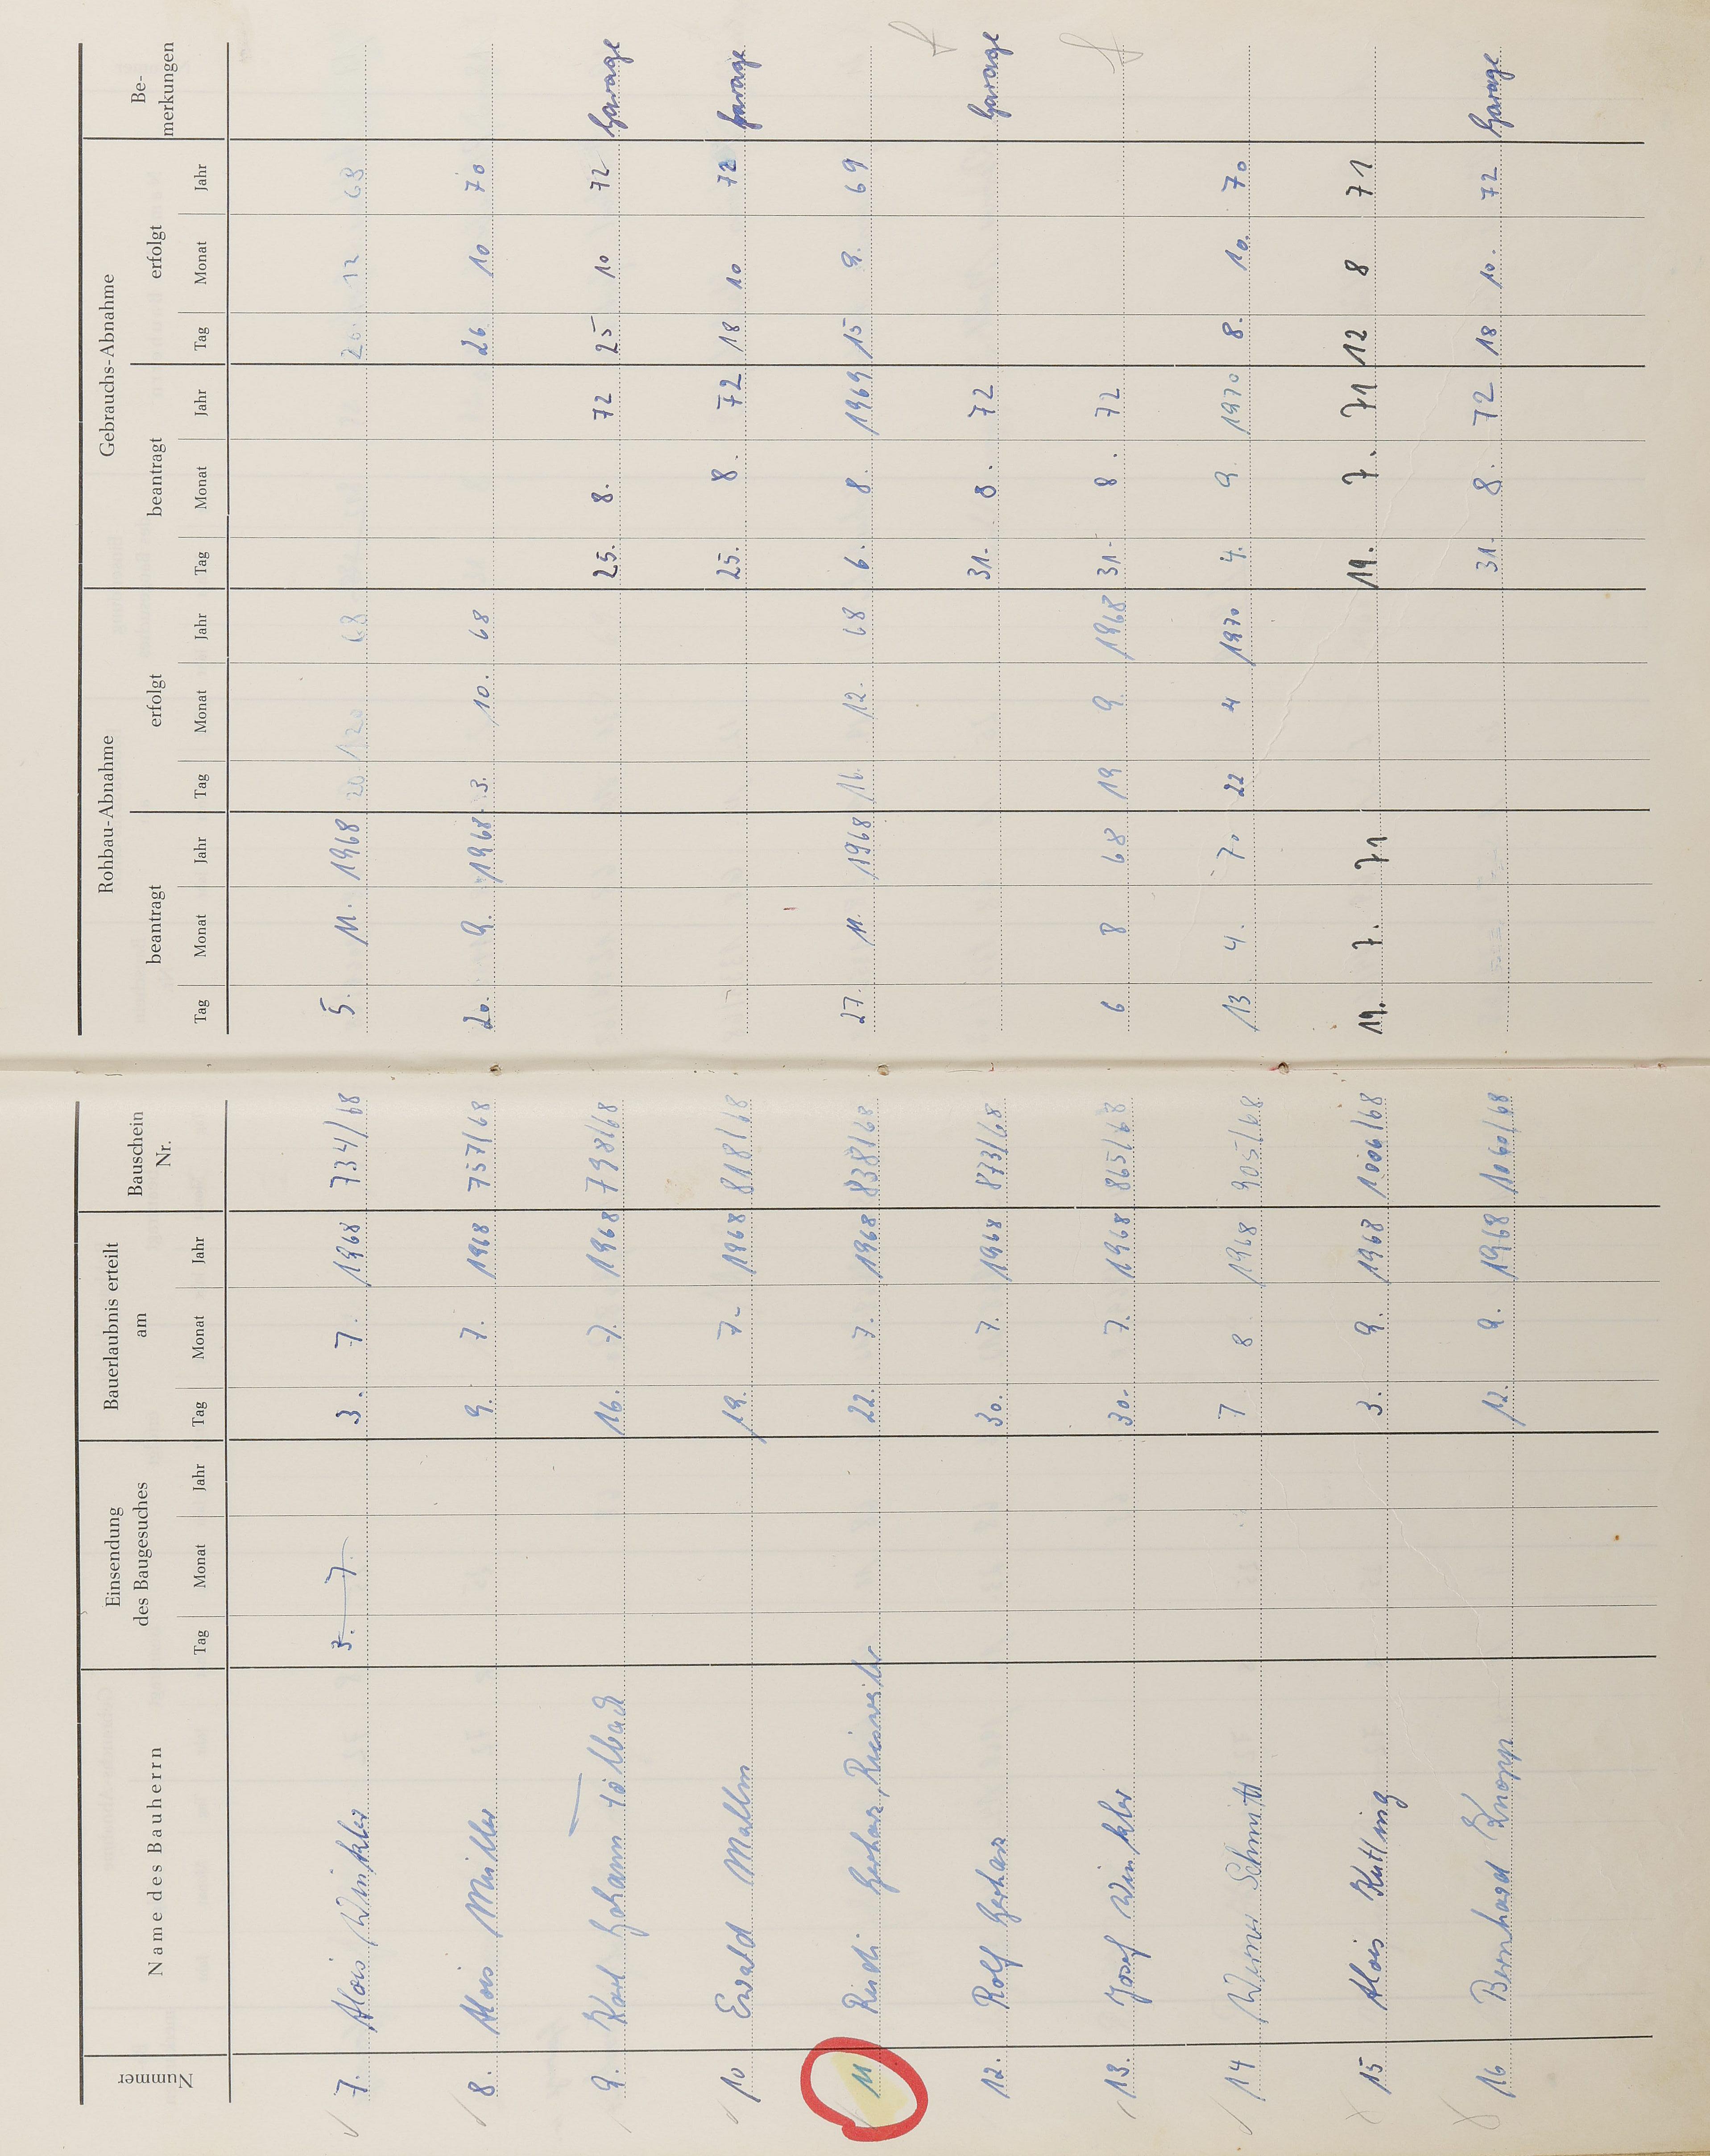 Nummer
Name des Bauherrn
Einsendung
des Baugesuches
Tag Monat Jahr
Bauerlaubnis erteilt
am
Tag Monat Jahr
Bauschein
Nr.
Rohbau-Abnahme
beantragt erfolgt
Tag Monat Jahr Tag Monat Jahr
Gebrauchs-Abnahme
beantragt erfolgt
Tag Monat Jahr Tag Monat Jahr
Be-
merkungen
7. Alois Winkler 3. 7. 3. 7. 1968 734/68 5. 11. 1968 20 12 68 20. 12 68
8. Alois Müller 9. 7. 1968 757/68 20. 9. 1968 3. 10. 68 26 10 70
9. Karl Johann 16. 7. 1968 798/68 25. 8. 72 25 10 72 Garage
10 Ewald Mallm 19. 7. 1968 818/68 25. 8. 72 18 10 72 Garage
11 Rudi Gerharz, 22. 7. 1968 838/68 27. 11. 1968 16. 12. 68 6. 8. 1969 15 9. 69
12. Rolf Gerharz 30. 7. 1968 873/68 31. 8. 72 Garage
13. Josef Winkler 30. 7. 1968 865/68 6 8 68 19 9. 1968 31. 8. 72
14 Werner Schmitt 7 8 1968 905/68 13 4. 70 22 4 1970 4. 9. 1970 8. 10. 70
15 Alois Kütting 3. 9. 1968 1006/68 19. 7. 71 19. 7. 71 12 8 71
16 Bernhard Knopp 12. 9. 1968 1060/68 31. 8. 72 18 10. 72 Garage